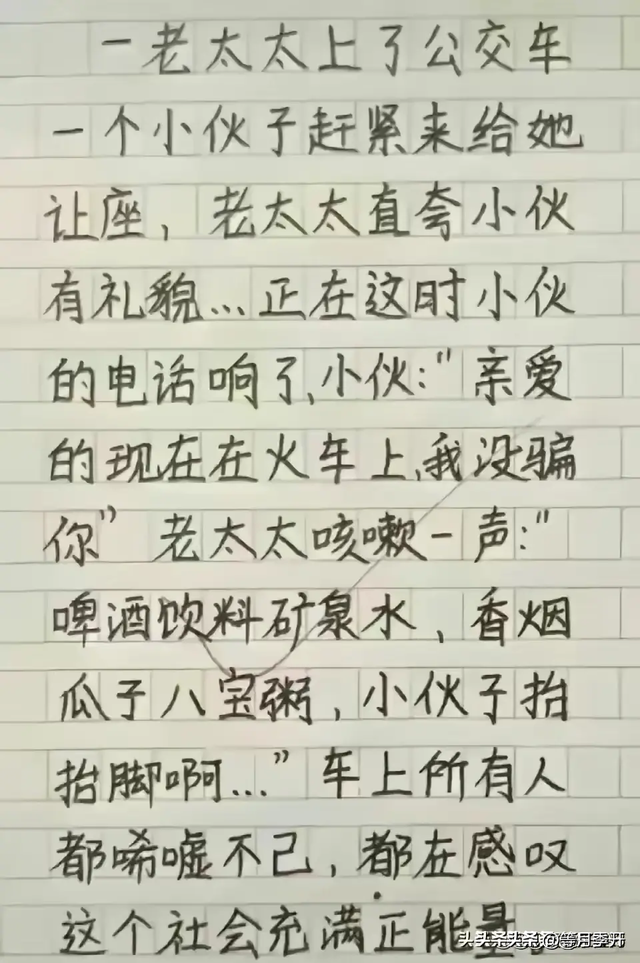 一老太太上了公交车
一个小伙子赶紧来给她
让座，老太太直夸小伙
有礼貌…正在这时小伙
的电话响了,小伙:"亲爱
的现在在火车上,我没骗
你" 老太太咳嗽一声:"
啤酒饮料矿泉水，香烟
瓜子八宝粥，小伙子抬
抬脚啊…"车上所有人
都唏嘘不己，都在感叹
这个社会充满正能量
头条@等月季开